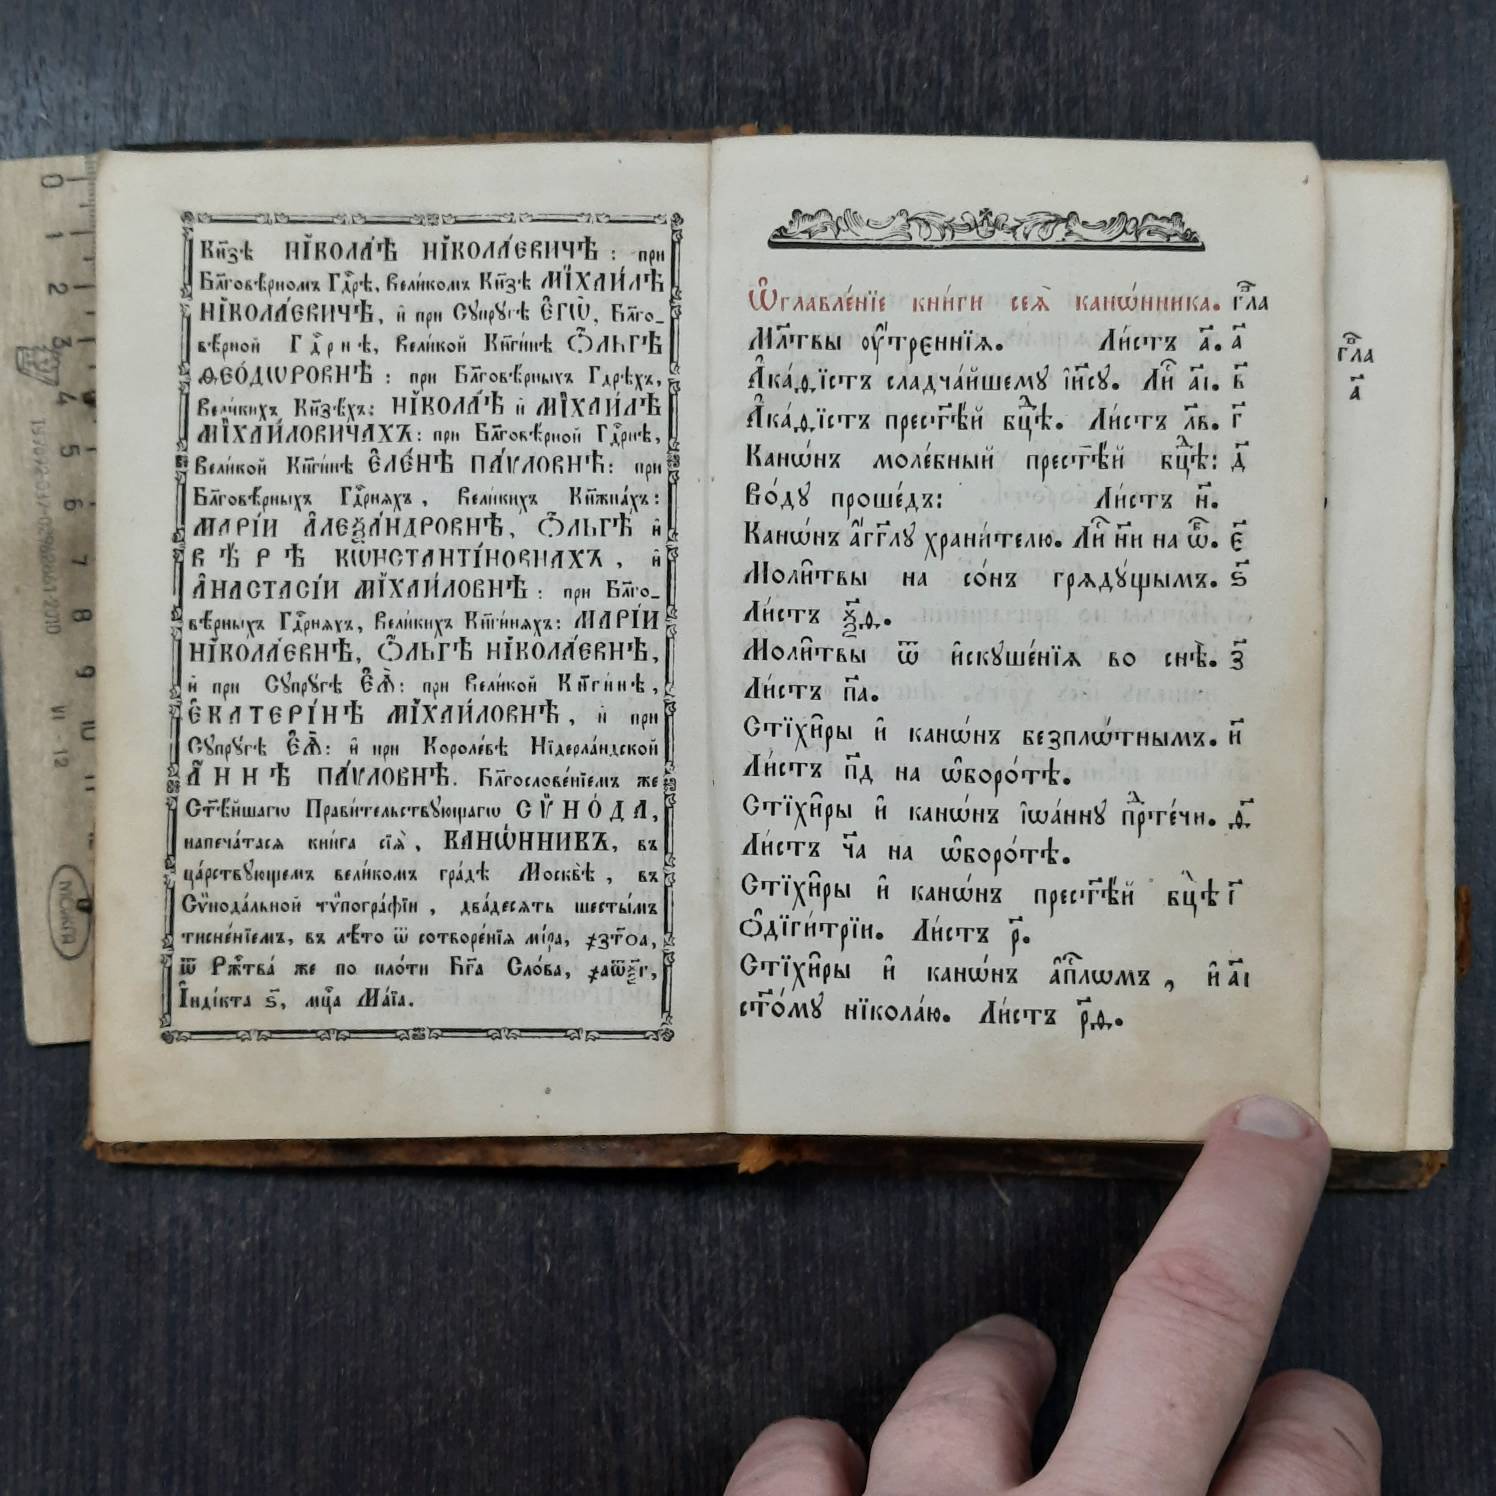 Кн҃зѣ НІКОЛА́Ѣ НІКОЛА́ЕВИЧѢ : при
Бл҃говѣ́рномъ Гдⷭ҇рѣ, Вели́комъ Кн҃зѣ МІХАИ́ЛѢ
НІКОЛА́ЕВИЧѢ, и҆ при Сꙋпрꙋ́гѣ Є҆ГѠ̀, Бл҃го_
вѣ́рной Гдⷭ҇рнѣ, Вели́кой Кн҃ги́нѣ Ѻ҆́ЛЬГѢ
ѲЕО́ДѠРОВНѢ : при Бл҃говѣ́рныхъ Гдⷭ҇рѣхъ,
Вели́кихъ Кн҃зѣ́хъ: НІКОЛА́Ѣ и҆ МІХАИ́ЛѢ
МІХАИ́ЛОВИЧАХЪ : при Бл҃говѣ́рной Гдⷭ҇рнѣ,
Вели́кой Кн҃ги́нѣ Є҆ЛЕ́НѢ ПА́ѴЛОВНѢ: при
Бл҃говѣ́рныхъ Гдⷭ҇рняхъ, Вели́кихъ Кн҃жна́хъ:
МАРІ́И А҆ЛЕѮА́НДРОВНѢ, Ѻ҆́ЛЬГѢ и҆
ВѢ́РѢ КѠНСТАНТІ́НОВНАХЪ, и҆
А҆НАСТАСІ́И МІХАИ́ЛОВНѢ : при Бл҃го_
вѣ́рныхъ Гдⷭ҇рняхъ, Вели́кихъ Кн҃ги́няхъ: МАРІ́И
НІКОЛА́ЕВНѢ, Ѻ҆́ЛЬГѢ НІКОЛА́ЕВНѢ,
и҆ при Сꙋпрꙋ́гѣ Є҆Ѧ̀: при Вели́кой Кн҃ги́нѣ,
Є҆КАТЕРІ́НѢ МІХАИ́ЛОВНѢ, и҆ при
Сꙋпрꙋ́гѣ Є҆Ѧ̀: и҆ при Короле́вѣ Нідерла́ндской
А҆́ННѢ ПА́ѴЛОВНѢ. Бл҃гослове́нїемъ же
Ст҃ѣ́йшагѡ Прави́тельствꙋющагѡ СѴНО́ДА,
напеча́тася кни́га сїѧ̀, КАНѠ́ННИКЪ, въ
ца́рствꙋющемъ вели́комъ гра́дѣ Москвѣ̀, въ
Сѵнода́льной тѷпогра́фїи, два́десять шесты́мъ
тисне́нїемъ, въ лѣ́то ѿ сотворе́нїя мі́ра, ҂зт҃оа,
ѿ Ржⷭ҇тва́ же по пло́ти Бг҃а Сло́ва, ҂аѿѯ҃г,
І҆нді́кта ѕ҃, мцⷭ҇а Ма́їа.
Ѡ҆главле́нїе кни́ги сеѧ̀ канѡ́нника. гла҃
Мл҃твы ᲂу҆́треннїя. Ли́стъ а҃. а҃
А҆ка́ѳїстъ сладча́йшемꙋ і҆и҃сꙋ. Лиⷭ҇ а҃і. в҃
А҆ка́ѳїстъ прест҃ѣ́й бцⷣѣ. Ли́стъ л҃в. г҃
Канѡ́нъ моле́бный прест҃ѣ́й бцⷣѣ: д҃
Во́дꙋ проше́дъ: Ли́стъ н҃.
Канѡ́нъ а҆́гг҃лꙋ храни́телю. Лиⷭ҇ н҃и на ѡ҆бⷪ҇. є҃
Моли̑твы на со́нъ грядꙋ́щымъ. ѕ҃
Ли́стъ ѯ҃ѳ.
Моли̑твы ѿ и҆скꙋше́нїя во снѣ̀. з҃
Ли́стъ п҃а.
Стїхи̑ры и҆ канѡ́нъ безплѡ́тнымъ. и҃
Ли́стъ п҃д на ѡ҆боро́тѣ.
Стїхи̑ры и҆ канѡ́нъ і҆ѡа́ннꙋ прⷣте́чи. ѳ҃
Ли́стъ ч҃а на ѡ҆боро́тѣ.
Стїхи̑ры и҆ канѡ́нъ прест҃ѣ́й бцⷣѣ і҃
Ѻ҆діги́трїи. Ли́стъ р҃.
Стїхи̑ры и҆ канѡ́нъ а҆пⷭ҇лѡмъ, и҆ а҃і
ст҃о́мꙋ ніко́лаю. Ли́стъ р҃ѳ.
гла҃
а҃
0
1
2
3
4
5
6
7
8
9
10
11